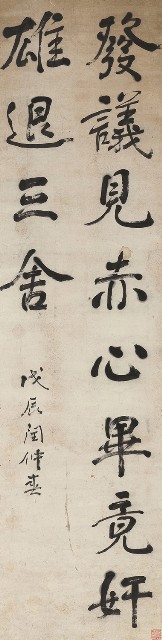 發議見赤心畢竟奸
雄退三舍
戊辰閏仲春